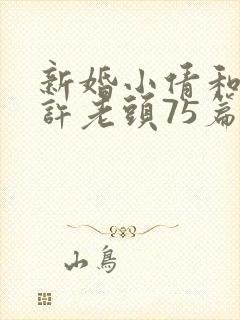 新婚小倩和
許老頭75篇
山鳥